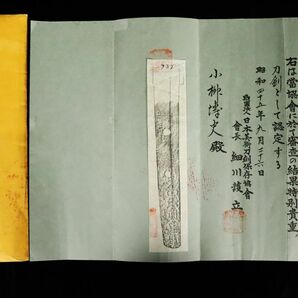 右は當協會に於て審査の結果特別貴重
刀劍として認定する
昭和四十五年九月二十六日
財團法人日本美術刀劍保存協會
會長 細川護立
小柳博文殿